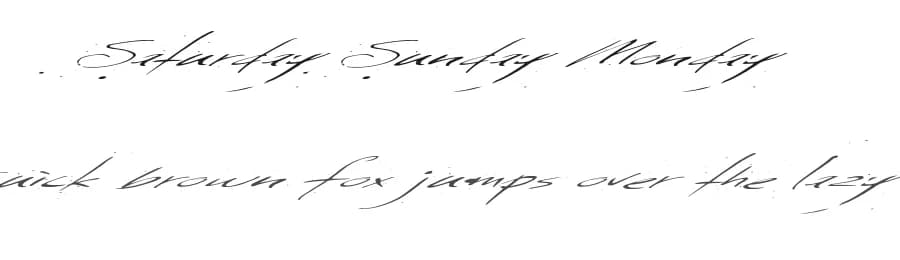 Saturday Sunday Monday
uick brown fox jumps over the lazy